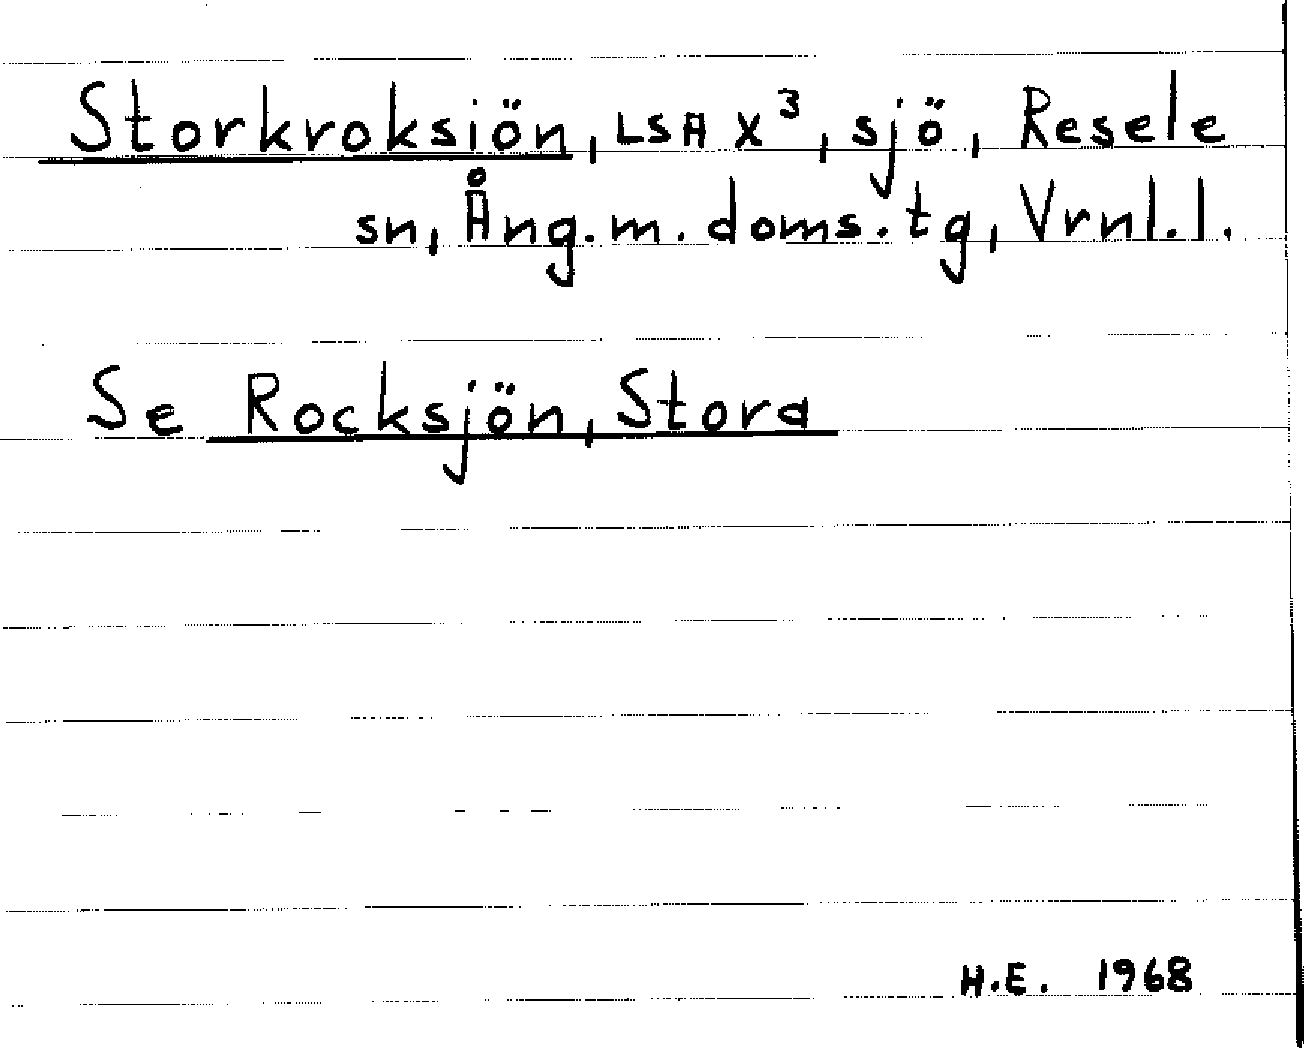 Storkroksiön, LSA X³, sjö, Resele
sn, Ång.m.doms.tg, Vrnl.l.
Se Rocksjön, Stora
H.E. 1968